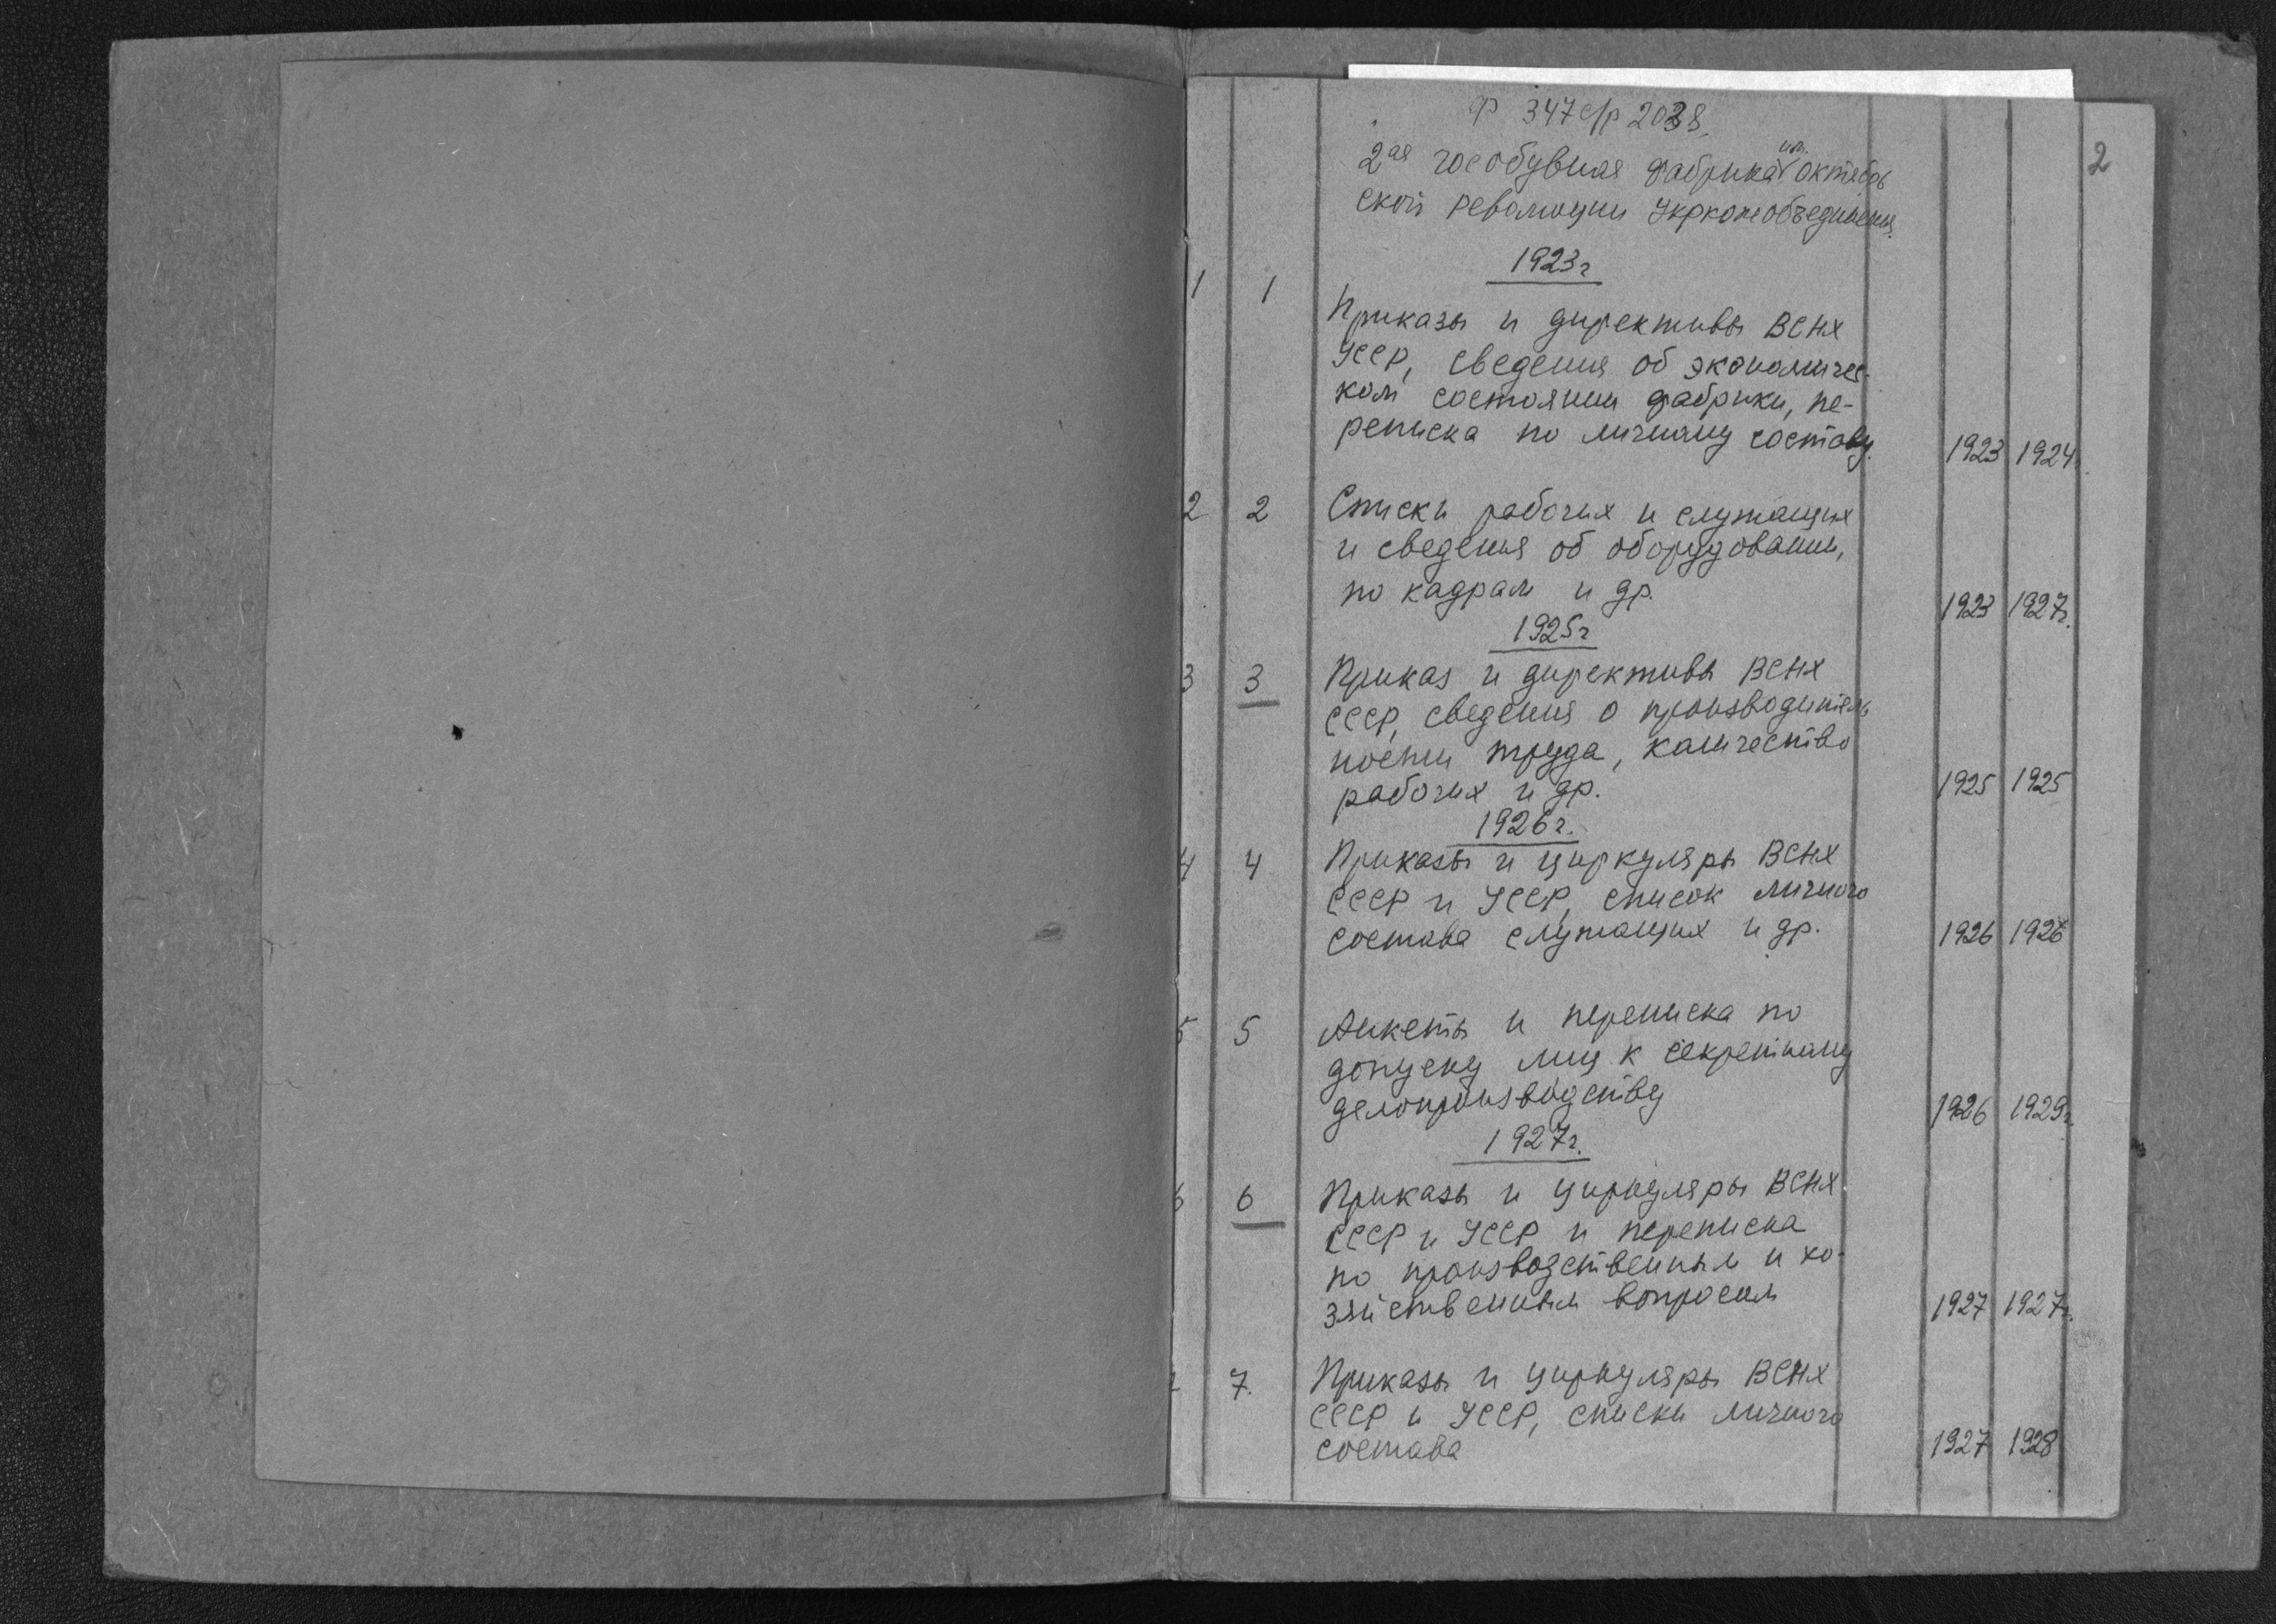 Ф 347 с/р 2038
2
2ая гособувная фабрика им. Октябрь
ской революции Укркожобъединения.
1923г
1 1 Приказы и директивы ВСНХ
УССР, сведения об экономичес-
ком состоянии фабрики, пе-
реписка по личному составу. 1923 1924
2 2 Списки рабочих и служащих
и сведения об оборудовании,
по кадрам и др. 1923 1927г.
1925г
3 3 Приказ и директивы ВСНХ
СССР, сведения о производитель
ности труда, количество
рабочих и др. 1925 1925
1926г.
4 4 Приказы и циркуляры ВСНХ
СССР и УССР, список личного
состава служащих и др. 1926 1926
5 5 Анкеты и переписка по
допуску лиц к секретному
делопроизводству 1926 1929г.
1927г.
6 6 Приказы и циркуляры ВСНХ
СССР и УССР и переписка
по производственным и хо-
зяйственным вопросам 1927 1927г.
7. Приказы и циркуляры ВСНХ
СССР и УССР, списки личного
состава 1927 1928